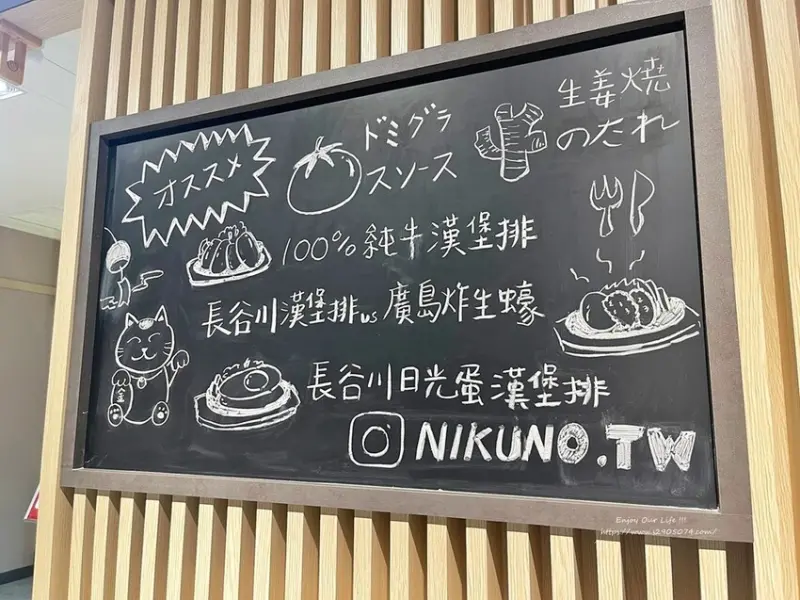 オススメ
ドミグラ
スソース
生姜燒
のたれ
100%純牛漢堡排
長谷川漢堡排vs廣島炸生蠔
長谷川日光蛋漢堡排
金
NIKUNO.TW
Enjoy Our Life !!!
https://www.i2905079.com/